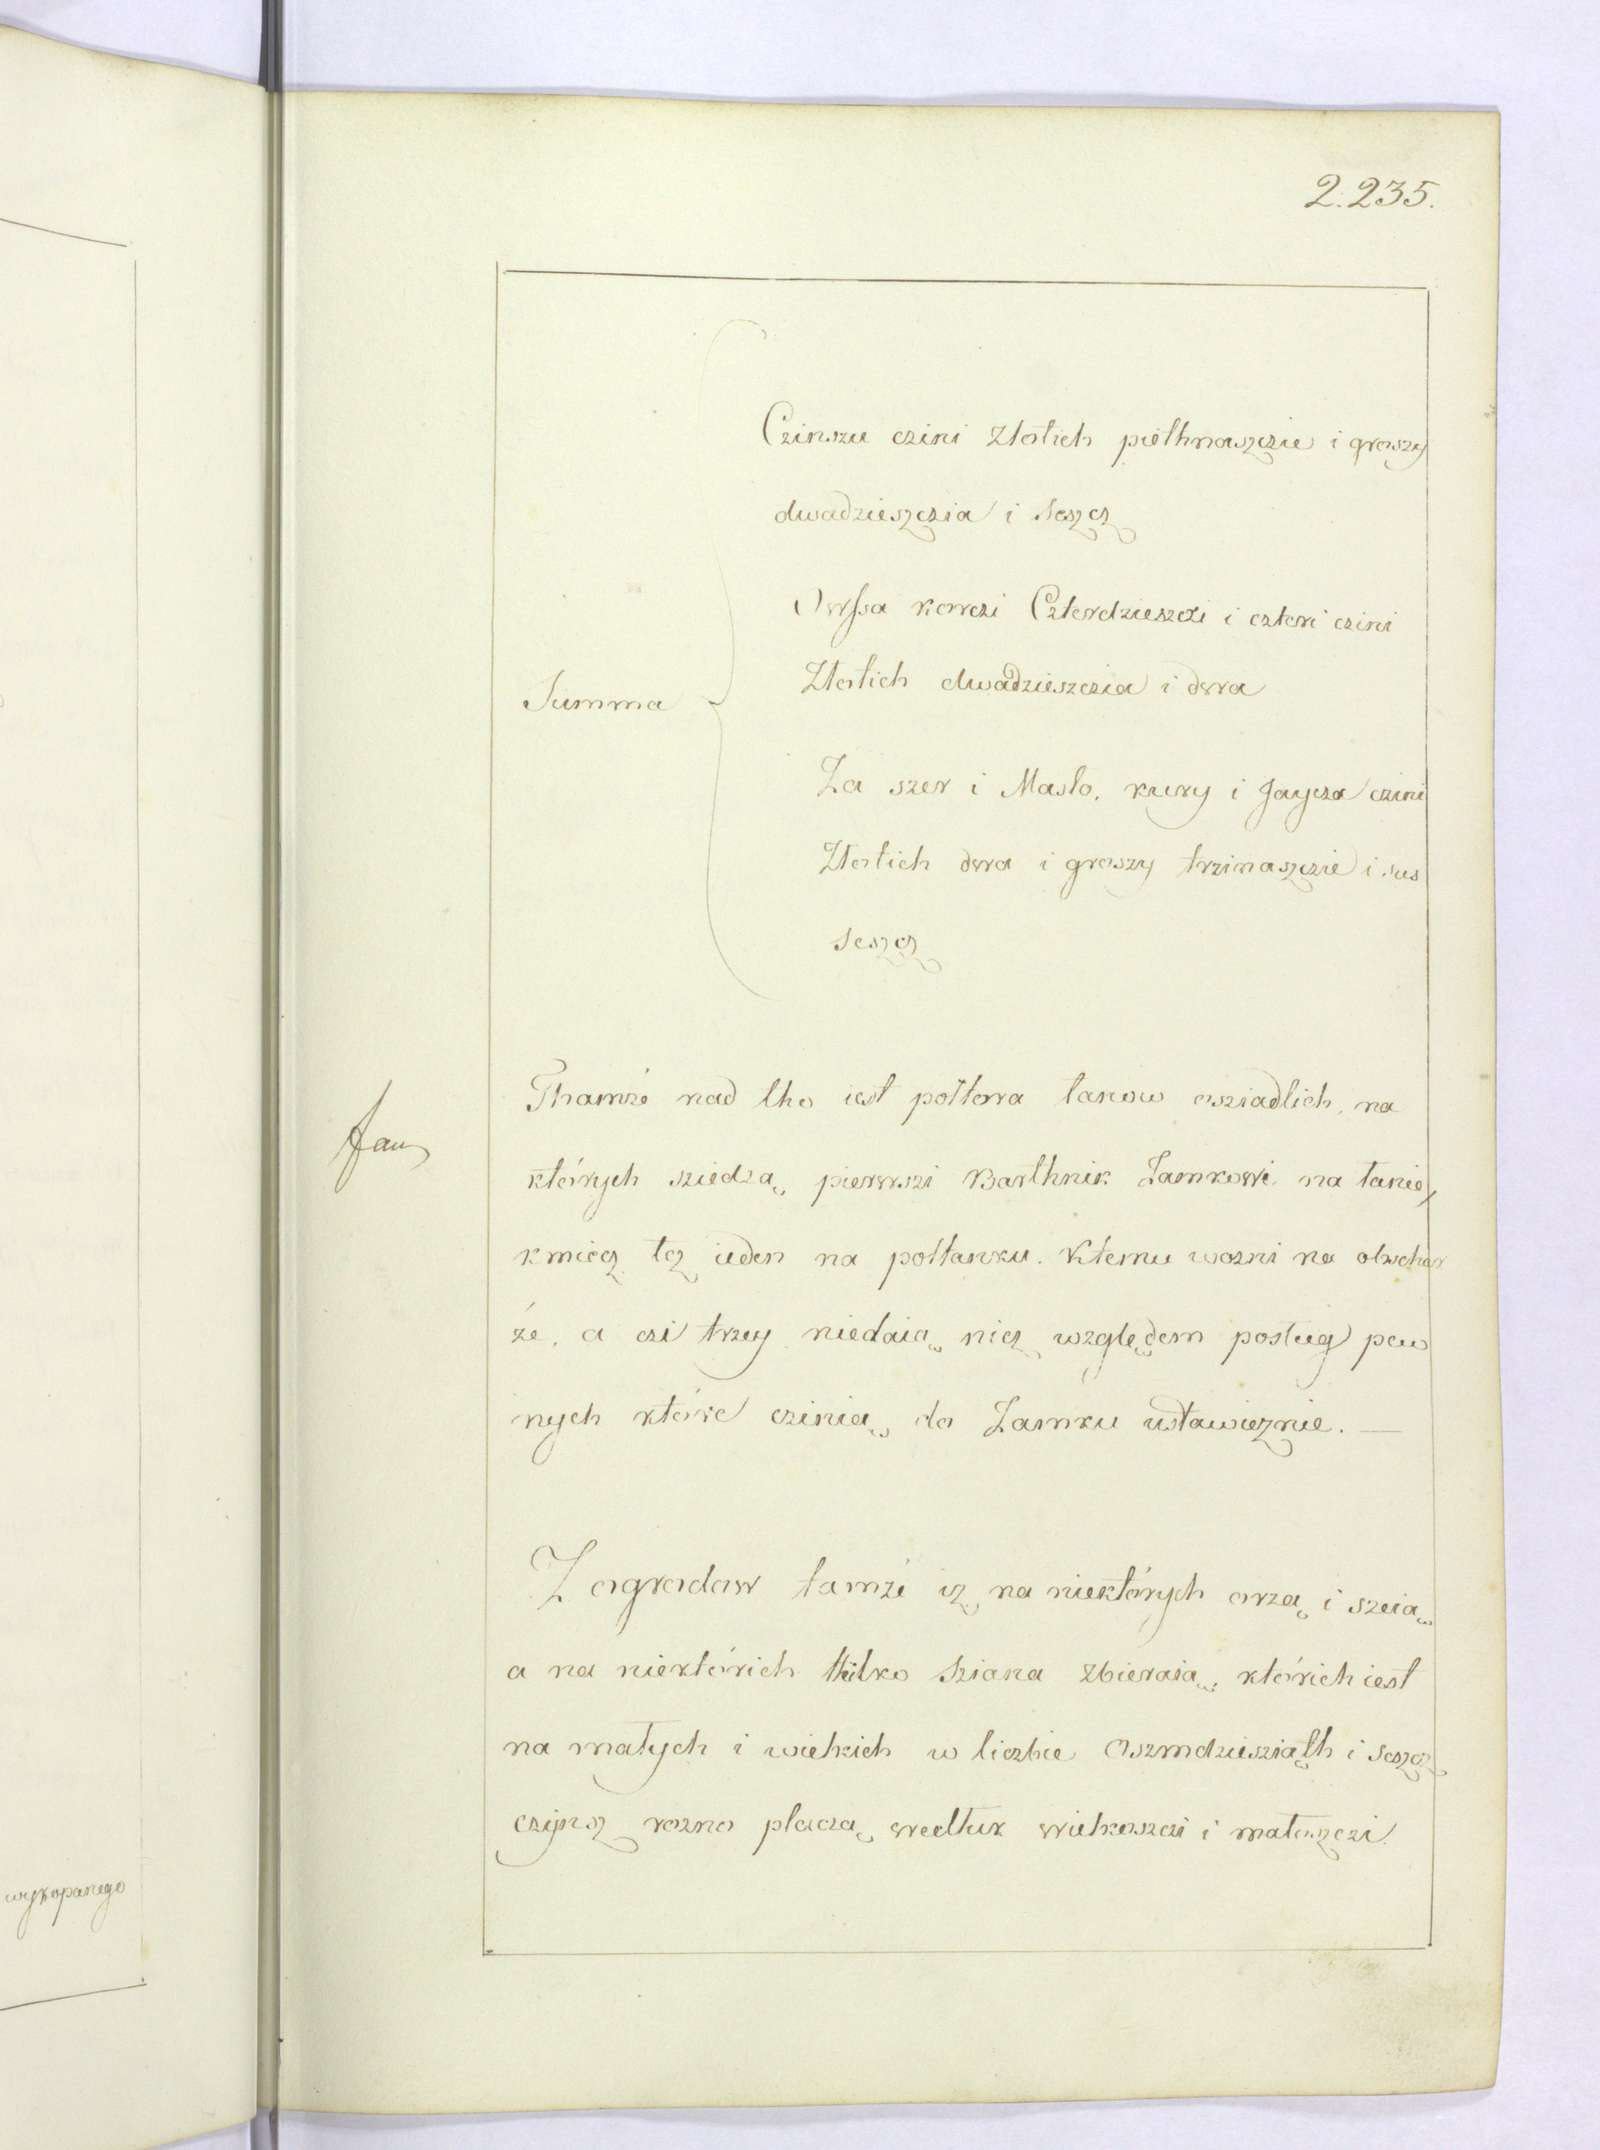 2.235.
Czinszu czini Złotich piethnaszczie i groszy
dwadzieszczia i Seszcz
Owssa korczi Czterdzieszczi i czteri czini
Złotich dwadzieszczia i dwa
Summa
Za szer i Masło, kury i Jaycza czini
Złotich dwa i groszy trzinaszczie i sus
Seszcz
Thamże nad tho iest połtorа łanow osziadlich, na
których sziedzą, pierwszi Barthnik Zamkowi na łanie,
kmiecz tez ieden na połłanku. Ktemu wozni na obschar
że, a czi trzey niedaią nicz względem posług pew
nych które czinią do Zamku ustawicznie. —
Zagrodow tamże iz na niektórych orzą i szeią
a na niektórich thilko Sziana zbieraią, którich iest
na małych i wielkich w liczbie Oszmdziesziąth i Seszcz
czynsz rozno płaczą wedłuk wielkoszczi i małoszczi.
wykopanego